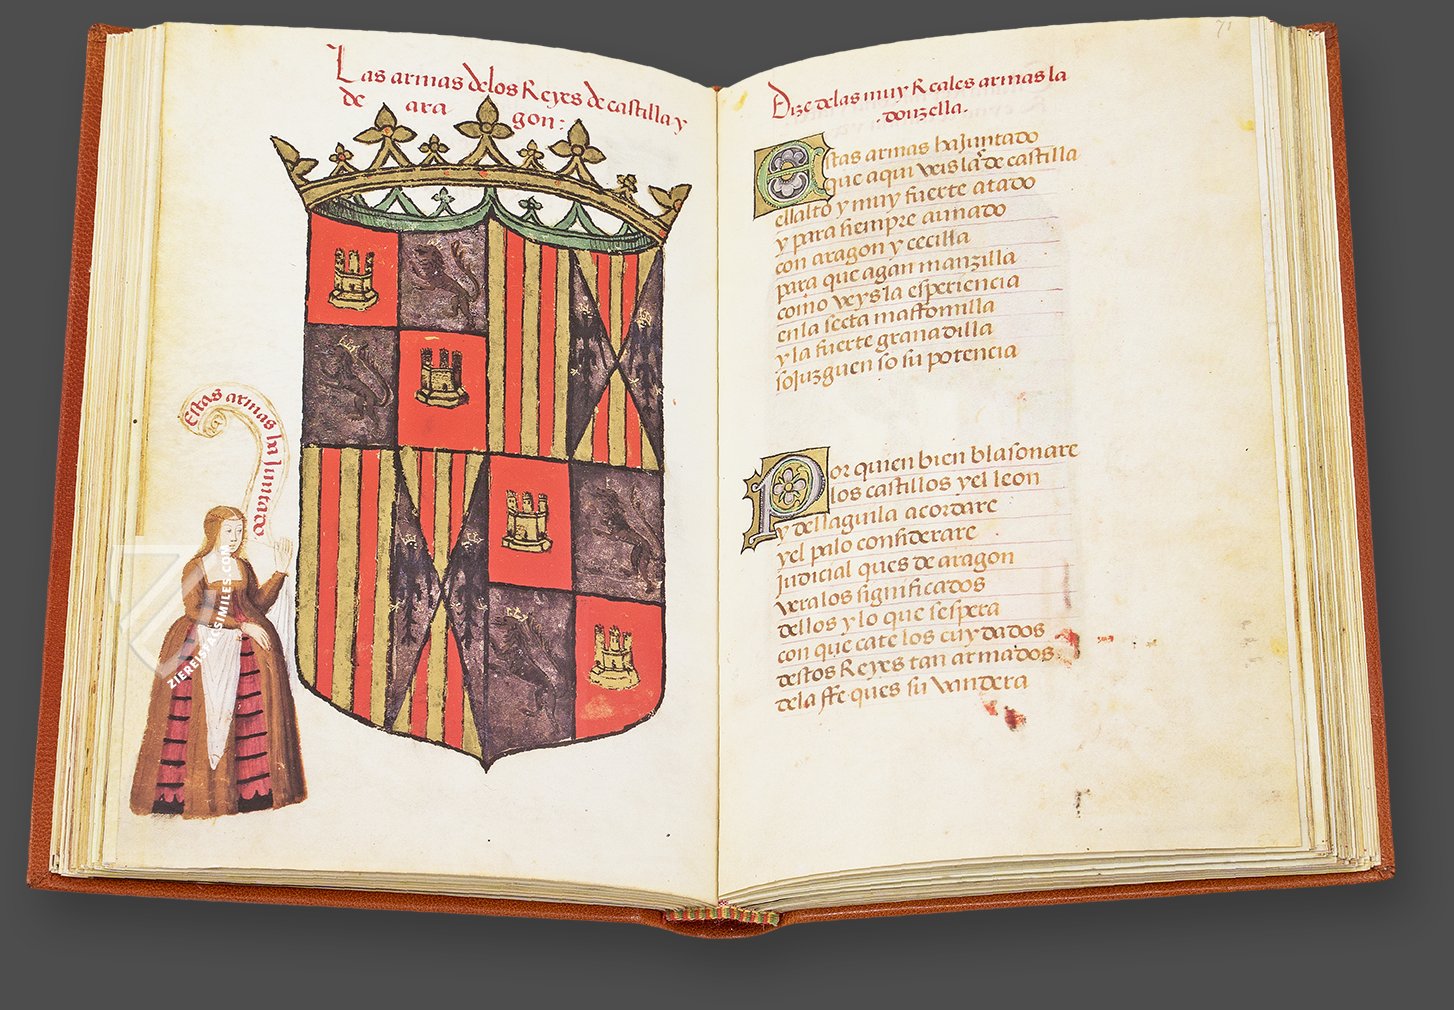 Las armas delos Reyes de castilla y
de ara gon:
Estas armas ha Juntado
ZIEREIS FACSIMILES.COM
71
Dize delas muy Reales armas la
.donzella.
Estas armas ha Juntado
que aqui veis la de castilla
ellalto y muy fuerte atado
y para siempre aunado
con aragon y cecilla
para que agan manzilla
como veys la esperiencia
en la secta maffomilla
y la fuerte granadilla
sojuzguen so su potencia
Por quien bien blasonare
los castillos y el leon
y dell aguila acordare
y el palo considerare
Judicial ques de aragon
vera los significados
dellos y lo que sespera
con que cate los cuydados
destos Reyes tan armados
dela ffe ques su vandera